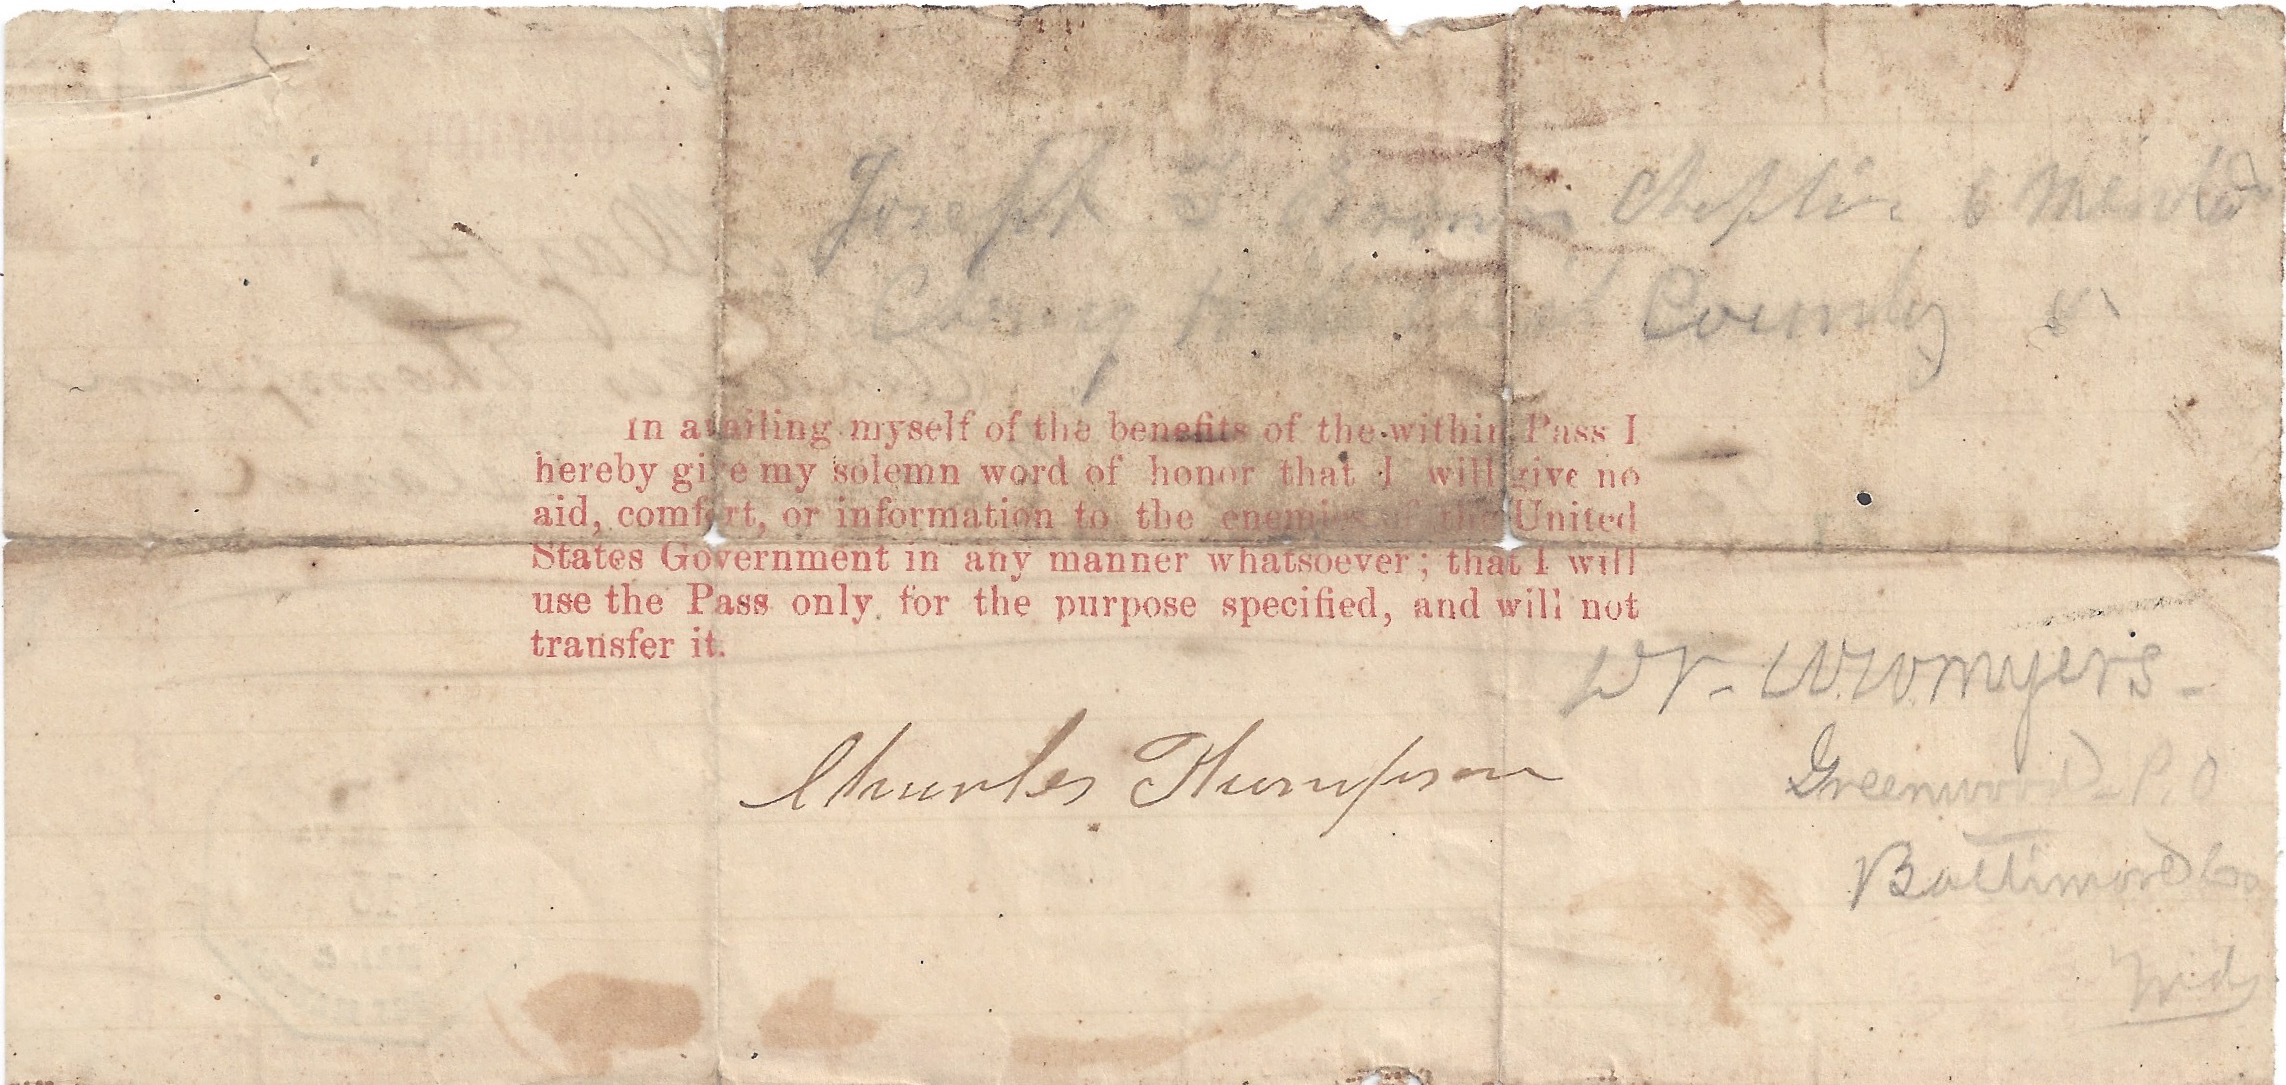 Joseph T Brown
Cherry Hill Cecil County
In availing myself of the benefits of the within Pass I
hereby give my solemn word of honor that I will give no
aid, comfort, or information to the enemies of the United
States Government in any manner whatsoever; that I will
use the Pass only for the purpose specified, and will not
transfer it.
Dr. W.W. Myers.
Charles Thompson
Greenwood P.O
Baltimore Co
Md